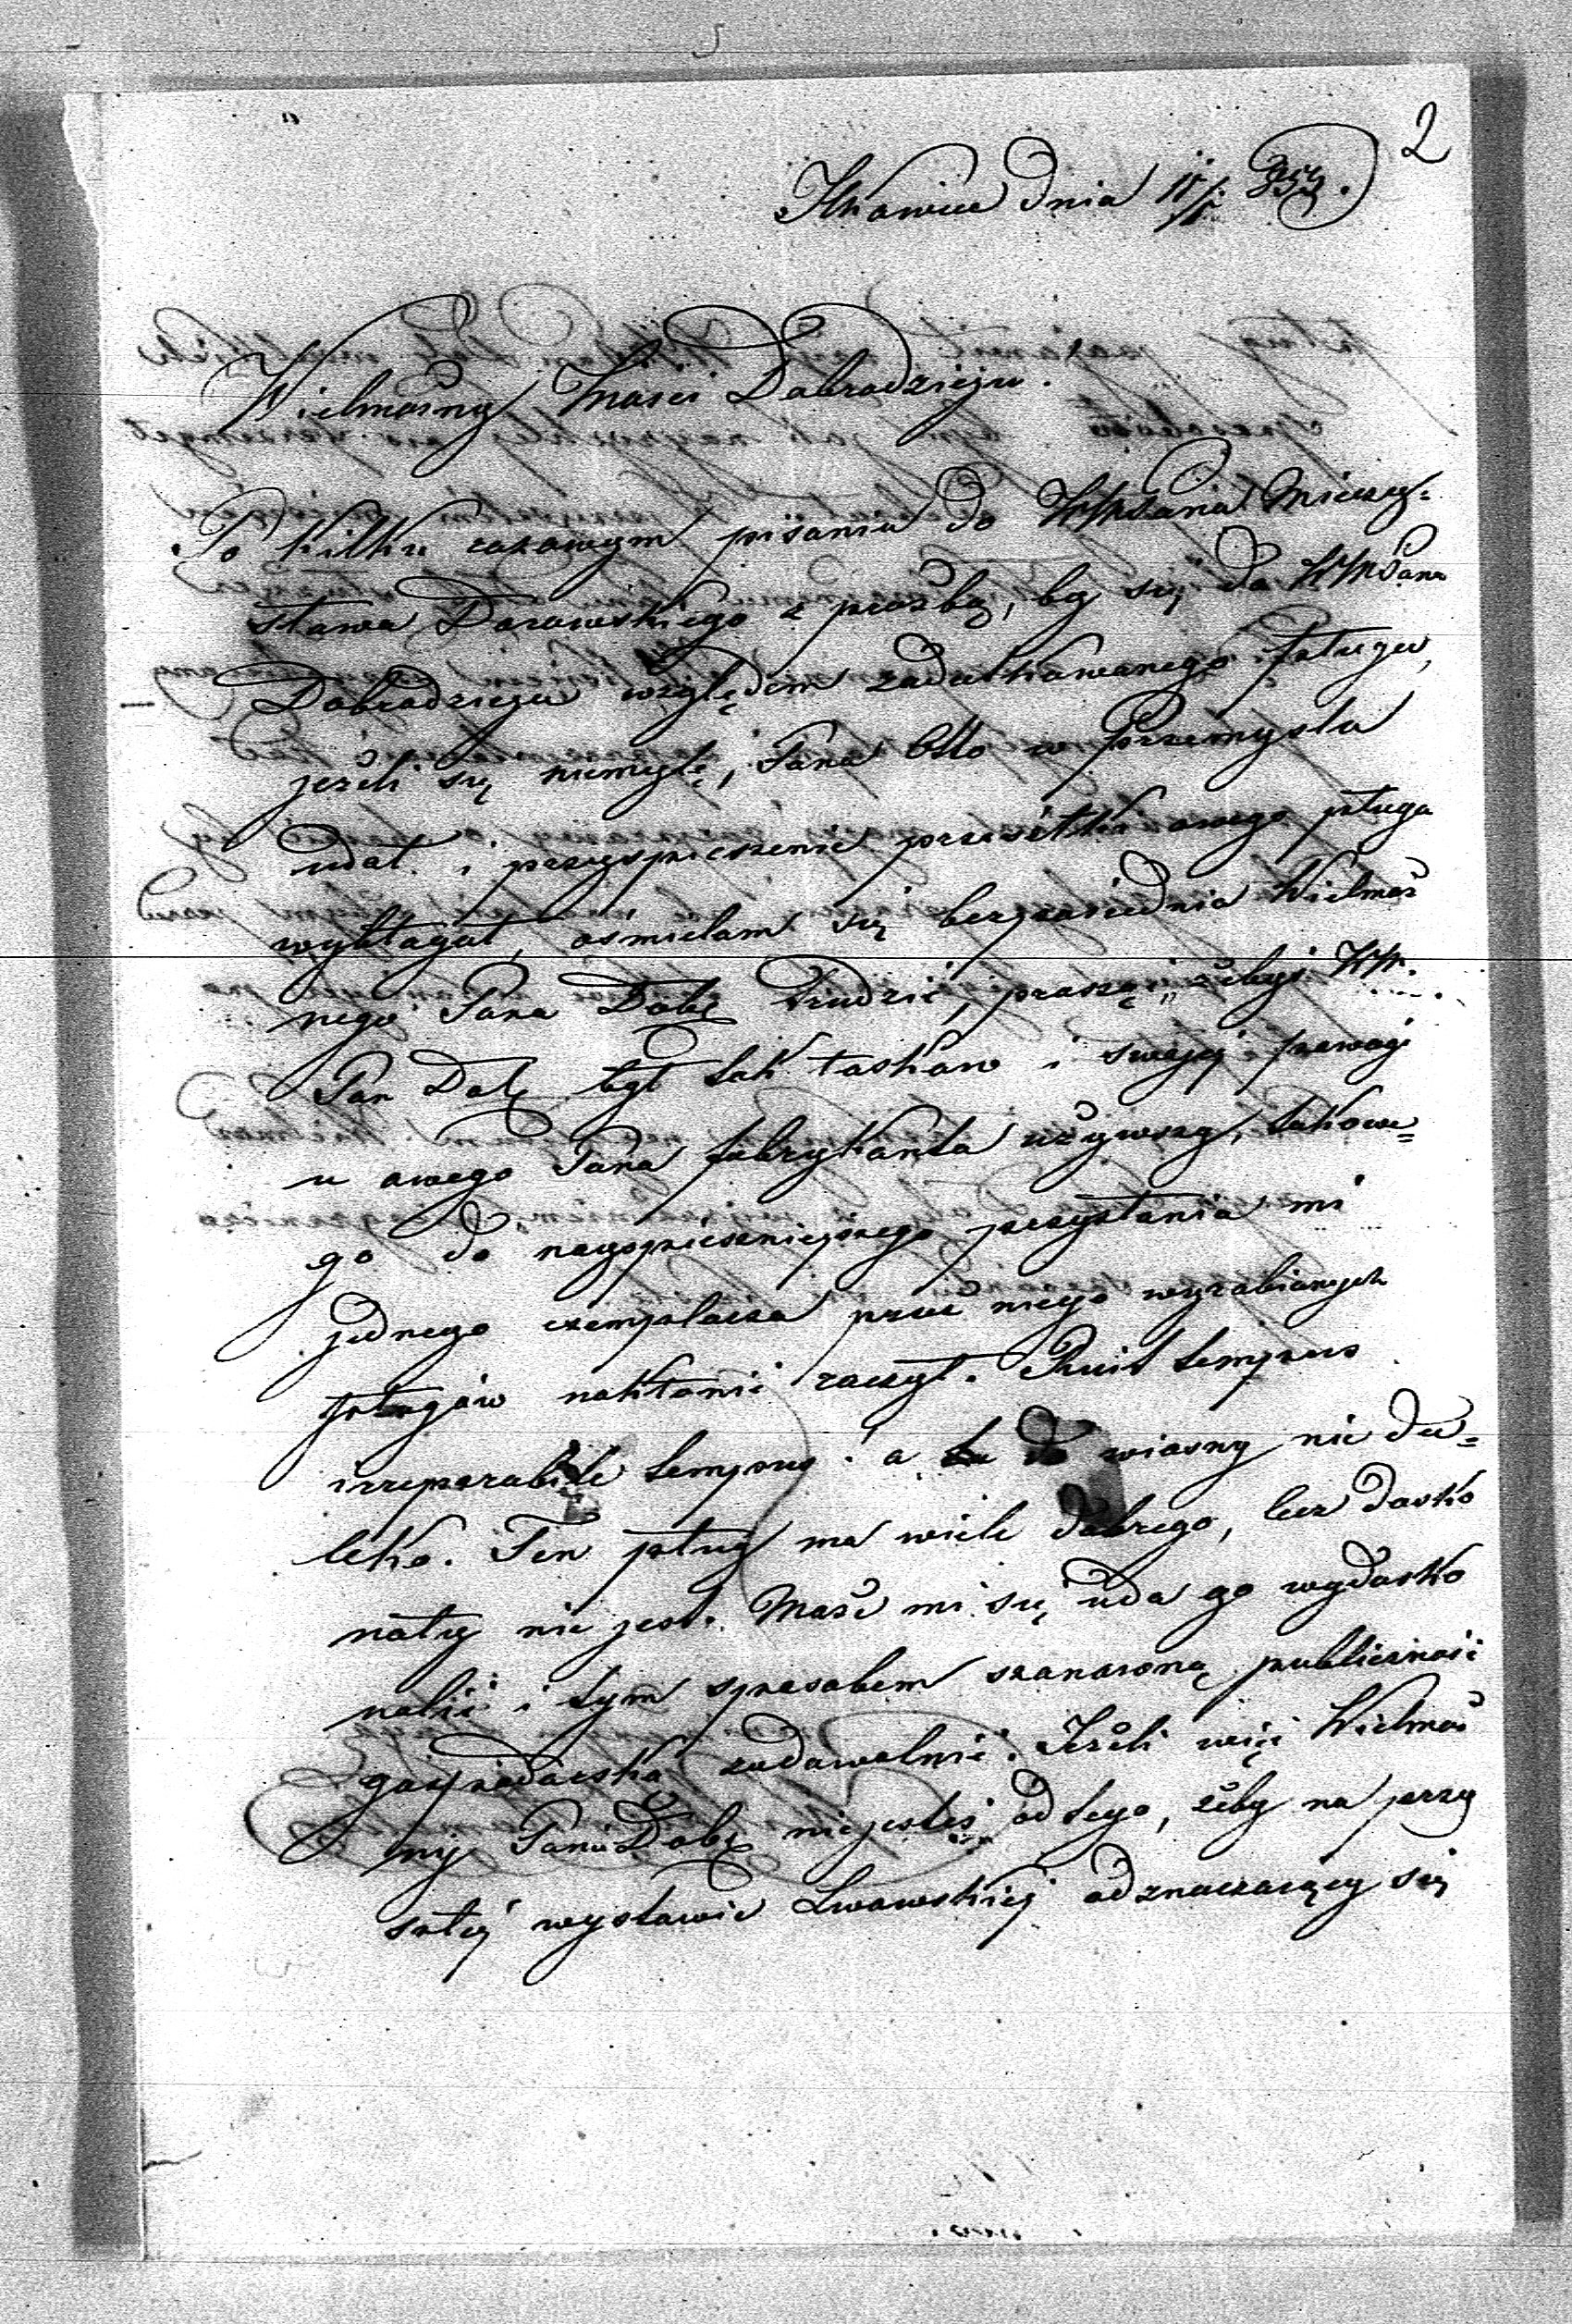 2
dnia
Wielmożny Mości Dobrodzieju.
Po kilku razowym pisaniu do WMPana Mieczy=
sława Darowskiego z prośbą, by się do WMPana
Dobrodzieja względem zadatkowanego pługu,
jeżeli się niemylę, Pana Otto w Przemyślu
udał i przyspieszenie przesiłki owego pługa
wybłagał, ośmielam się bezpośrednio Wielmoż
nego Pana Dobę trudzić, prosząc, żebyś WM.
Pan Dobę był tak łaskaw i swojej powagi
u owego Pana fabrykanta używszy, takowe=
go do najspieszniejszego przysłania mi
jednego exemplarza przez niego wyrabianych
pługów nakłonić raczył. Ruit tempus
irreparabile tempus: a do wiosny nie da=
leko. Ten pług ma wiele dobrego, lecz dosko
nały nie jest. Może mi się uda go wydosko
nalić i tym sposobem szanowną publiczność
gospodarską zadowolnić. Jeżeli więc Wielmoż
ny Panie Dobę niejesteś od tego, żeby na przy
szłej wystawie Lwowskiej odznaczający się